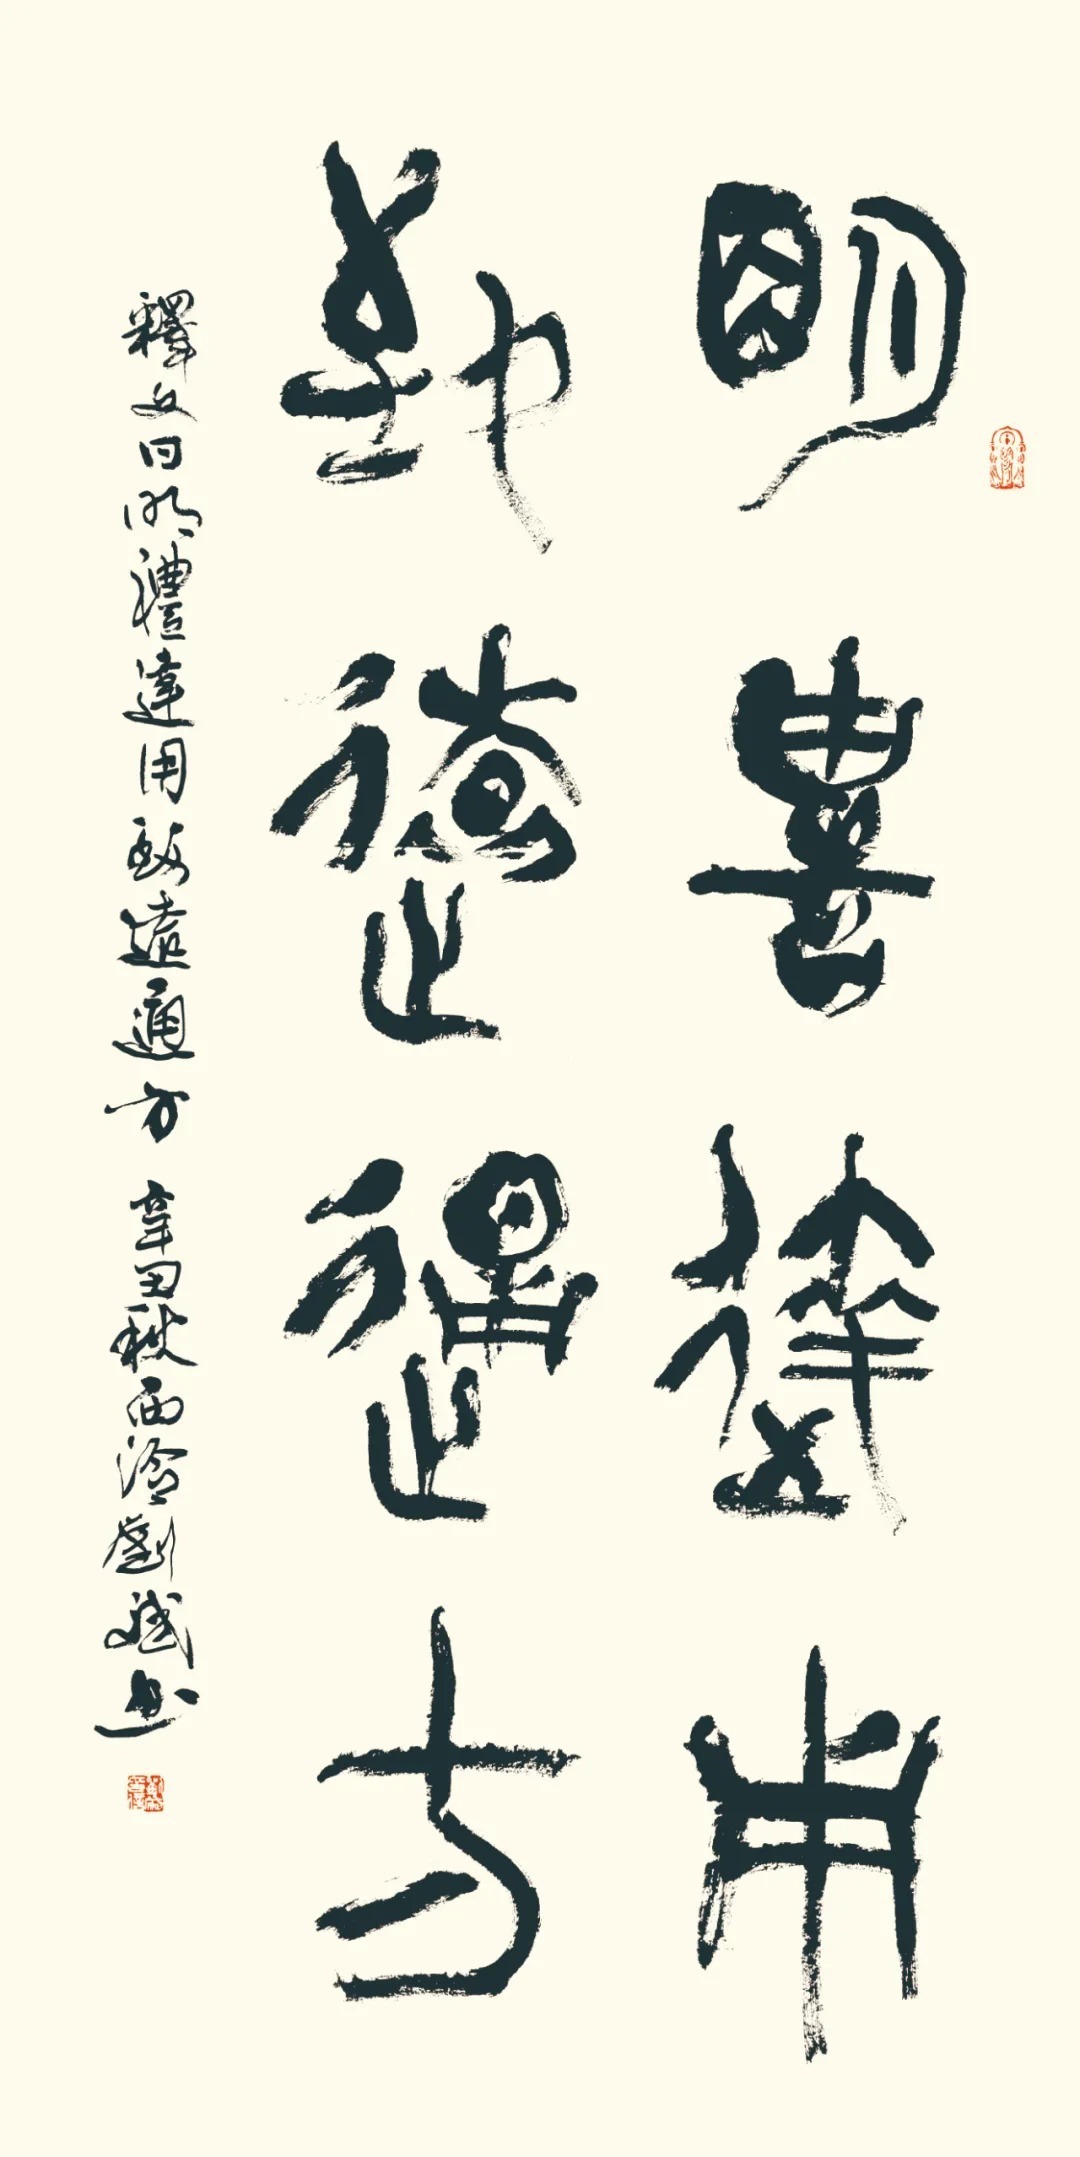 明豊達用
致遠通方
釋文曰明禮達用致遠通方 辛丑秋西泠劉斌書